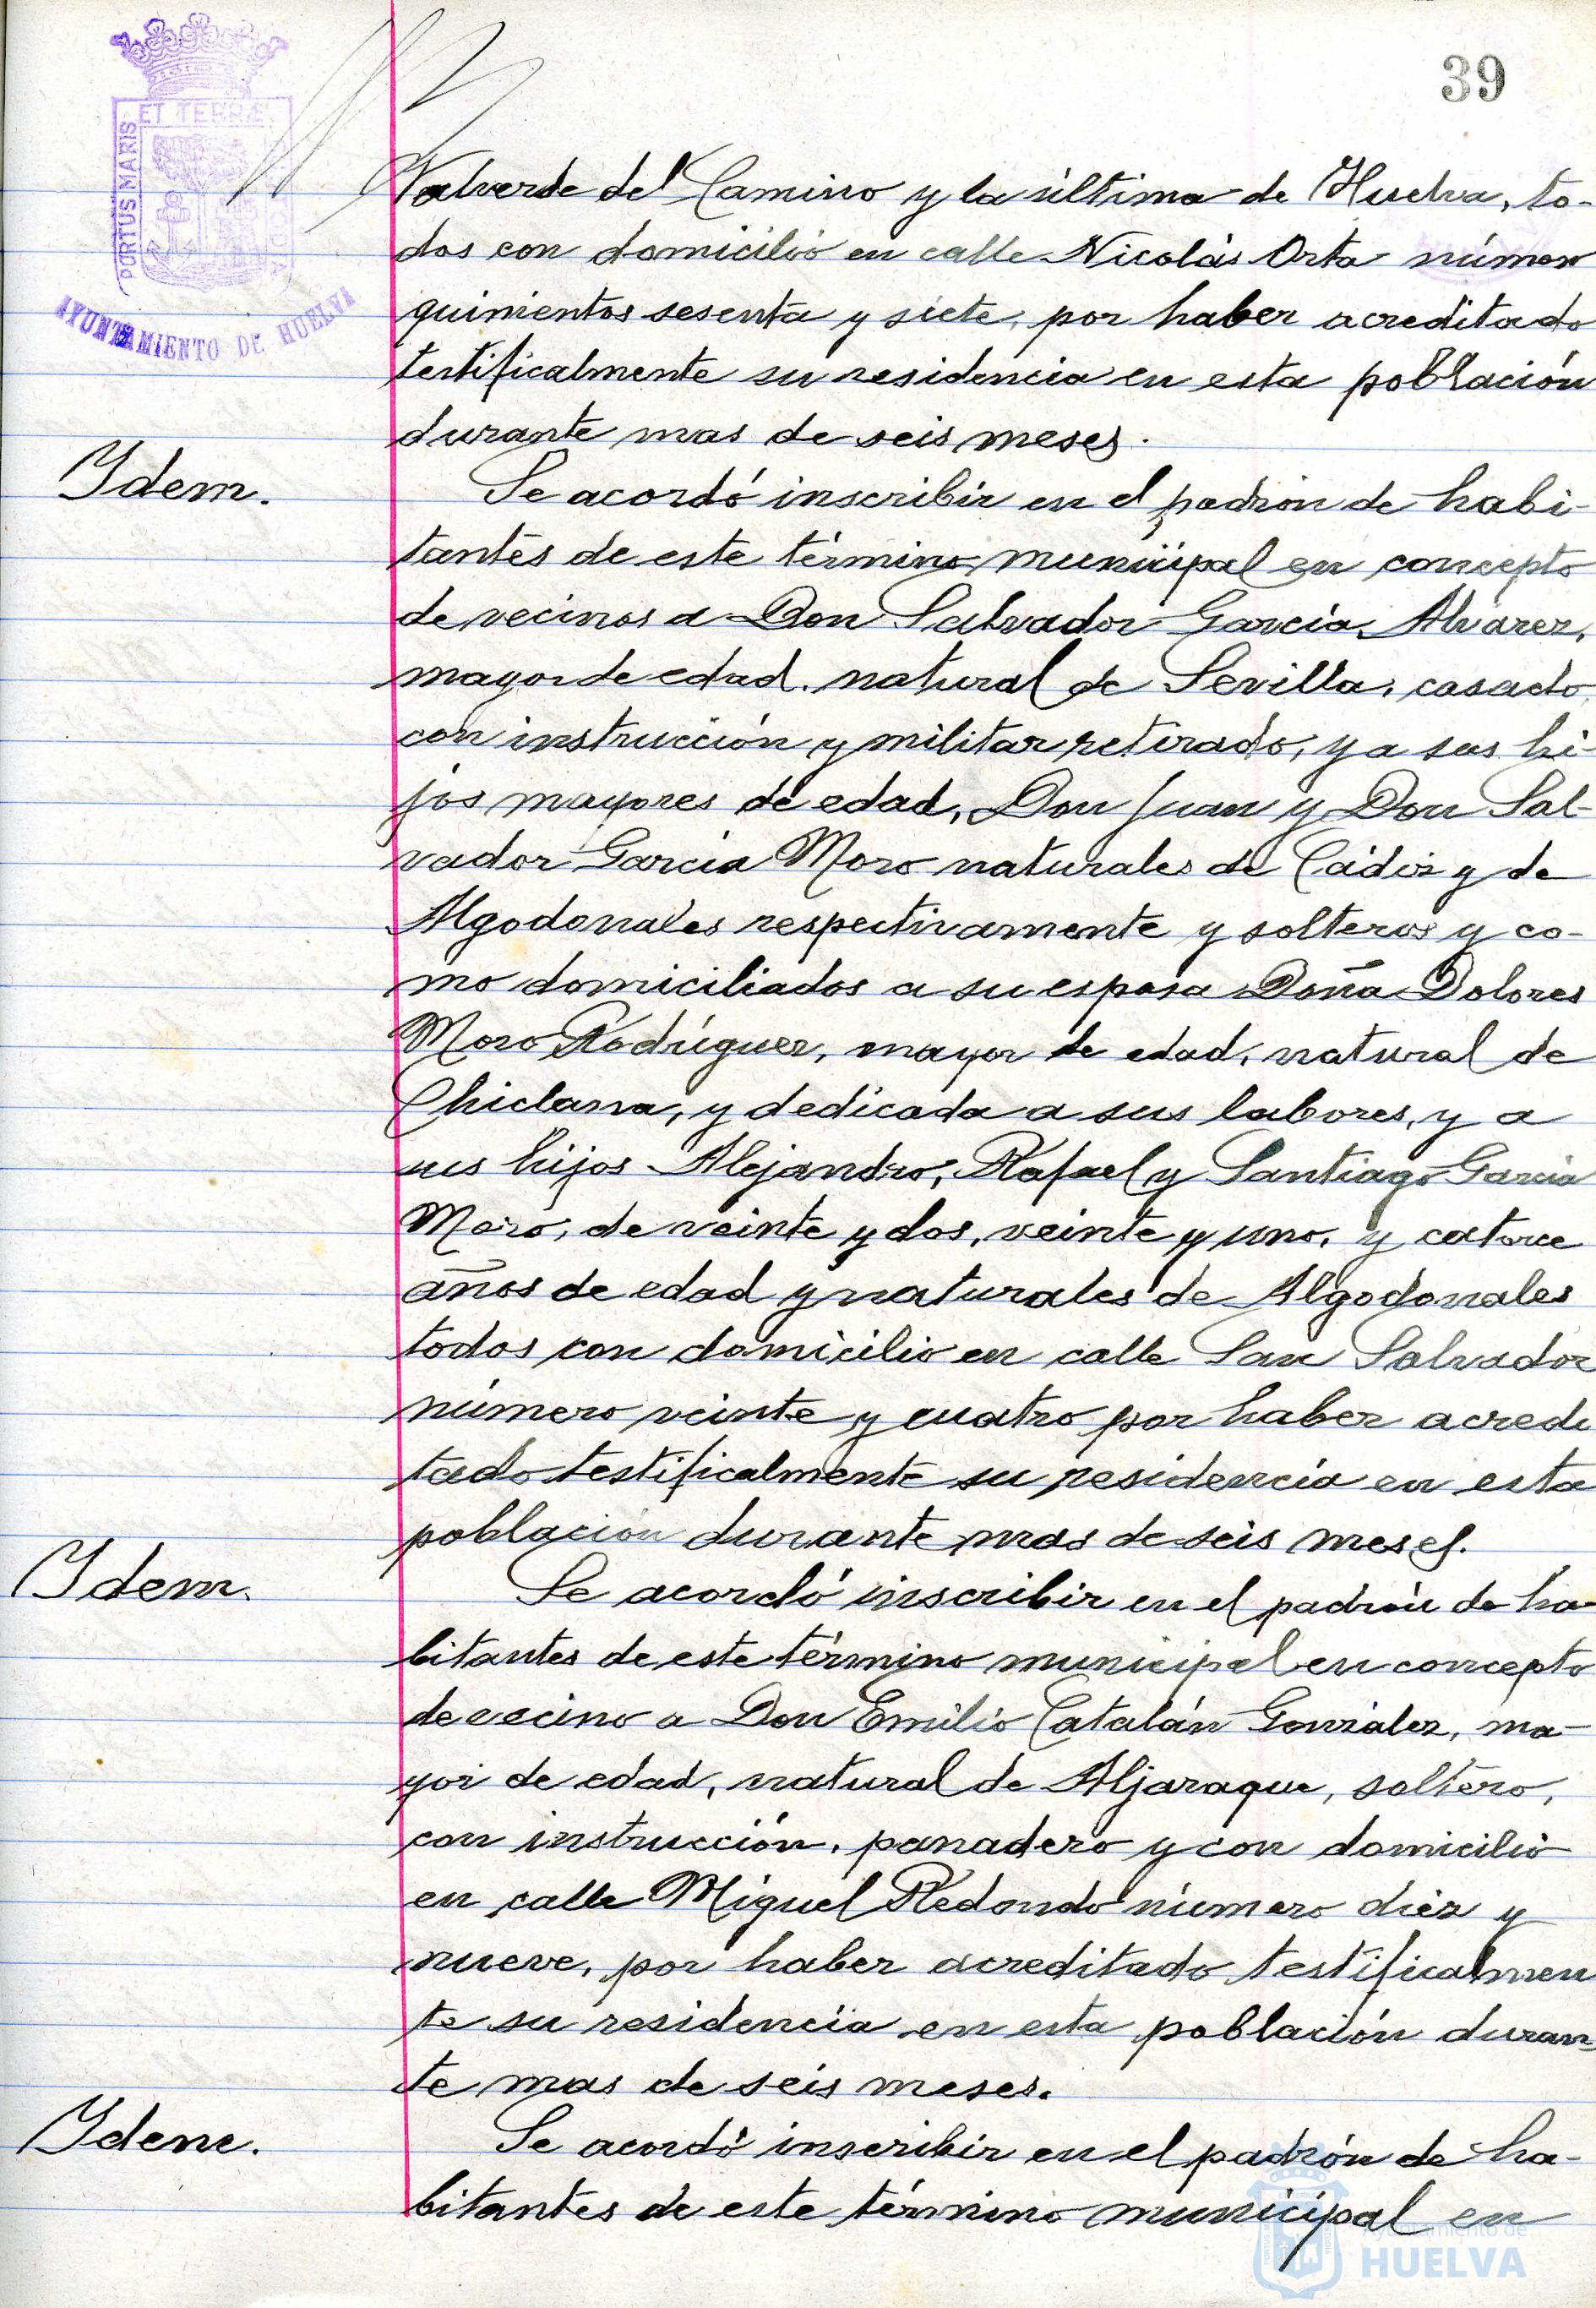 39
PORTUS MARIS ET TERRÆ
AYUNTAMIENTO DE HUELVA
Valverde del Camino y la última de Huelva, to-
dos con domicilio en calle Nicolás Orta número
quinientos sesenta y siete, por haber acreditado
testificalmente su residencia en esta población
durante mas de seis meses.
Ydem.
Se acordó inscribir en el padrón de habi-
tantes de este término municipal en concepto
de vecinos a Don Salvador García Alvarez,
mayor de edad, natural de Sevilla, casado,
con instrucción y militar retirado, y a sus hi-
jos mayores de edad, Don Juan y Don Sal-
vador García Moro naturales de Cádiz y de
Algodonales respectivamente y solteros y co-
mo domiciliados a su esposa Doña Dolores
Moro Rodríguez, mayor de edad, natural de
Chiclana, y dedicada a sus labores, y a
sus hijos Alejandro, Rafael y Santiago García
Moro, de veinte y dos, veinte y uno, y catorce
años de edad y naturales de Algodonales
todos con domicilio en calle San Salvador
número veinte y cuatro por haber acredi
tado testificalmente su residencia en esta
población durante mas de seis meses.
Ydem.
Se acordó inscribir en el padrón de ha-
bitantes de este término municipal en concepto
de vecino a Don Emilio Catalán González, ma-
yor de edad, natural de Aljaraque, soltero,
con instrucción, panadero y con domicilio
en calle Miguel Redondo número diez y
nueve, por haber acreditado testificalmen
te su residencia en esta población duran-
te mas de seis meses.
Ydem.
Se acordó inscribir en el padrón de ha-
bitantes de este término municipal en
Ayuntamiento de
HUELVA